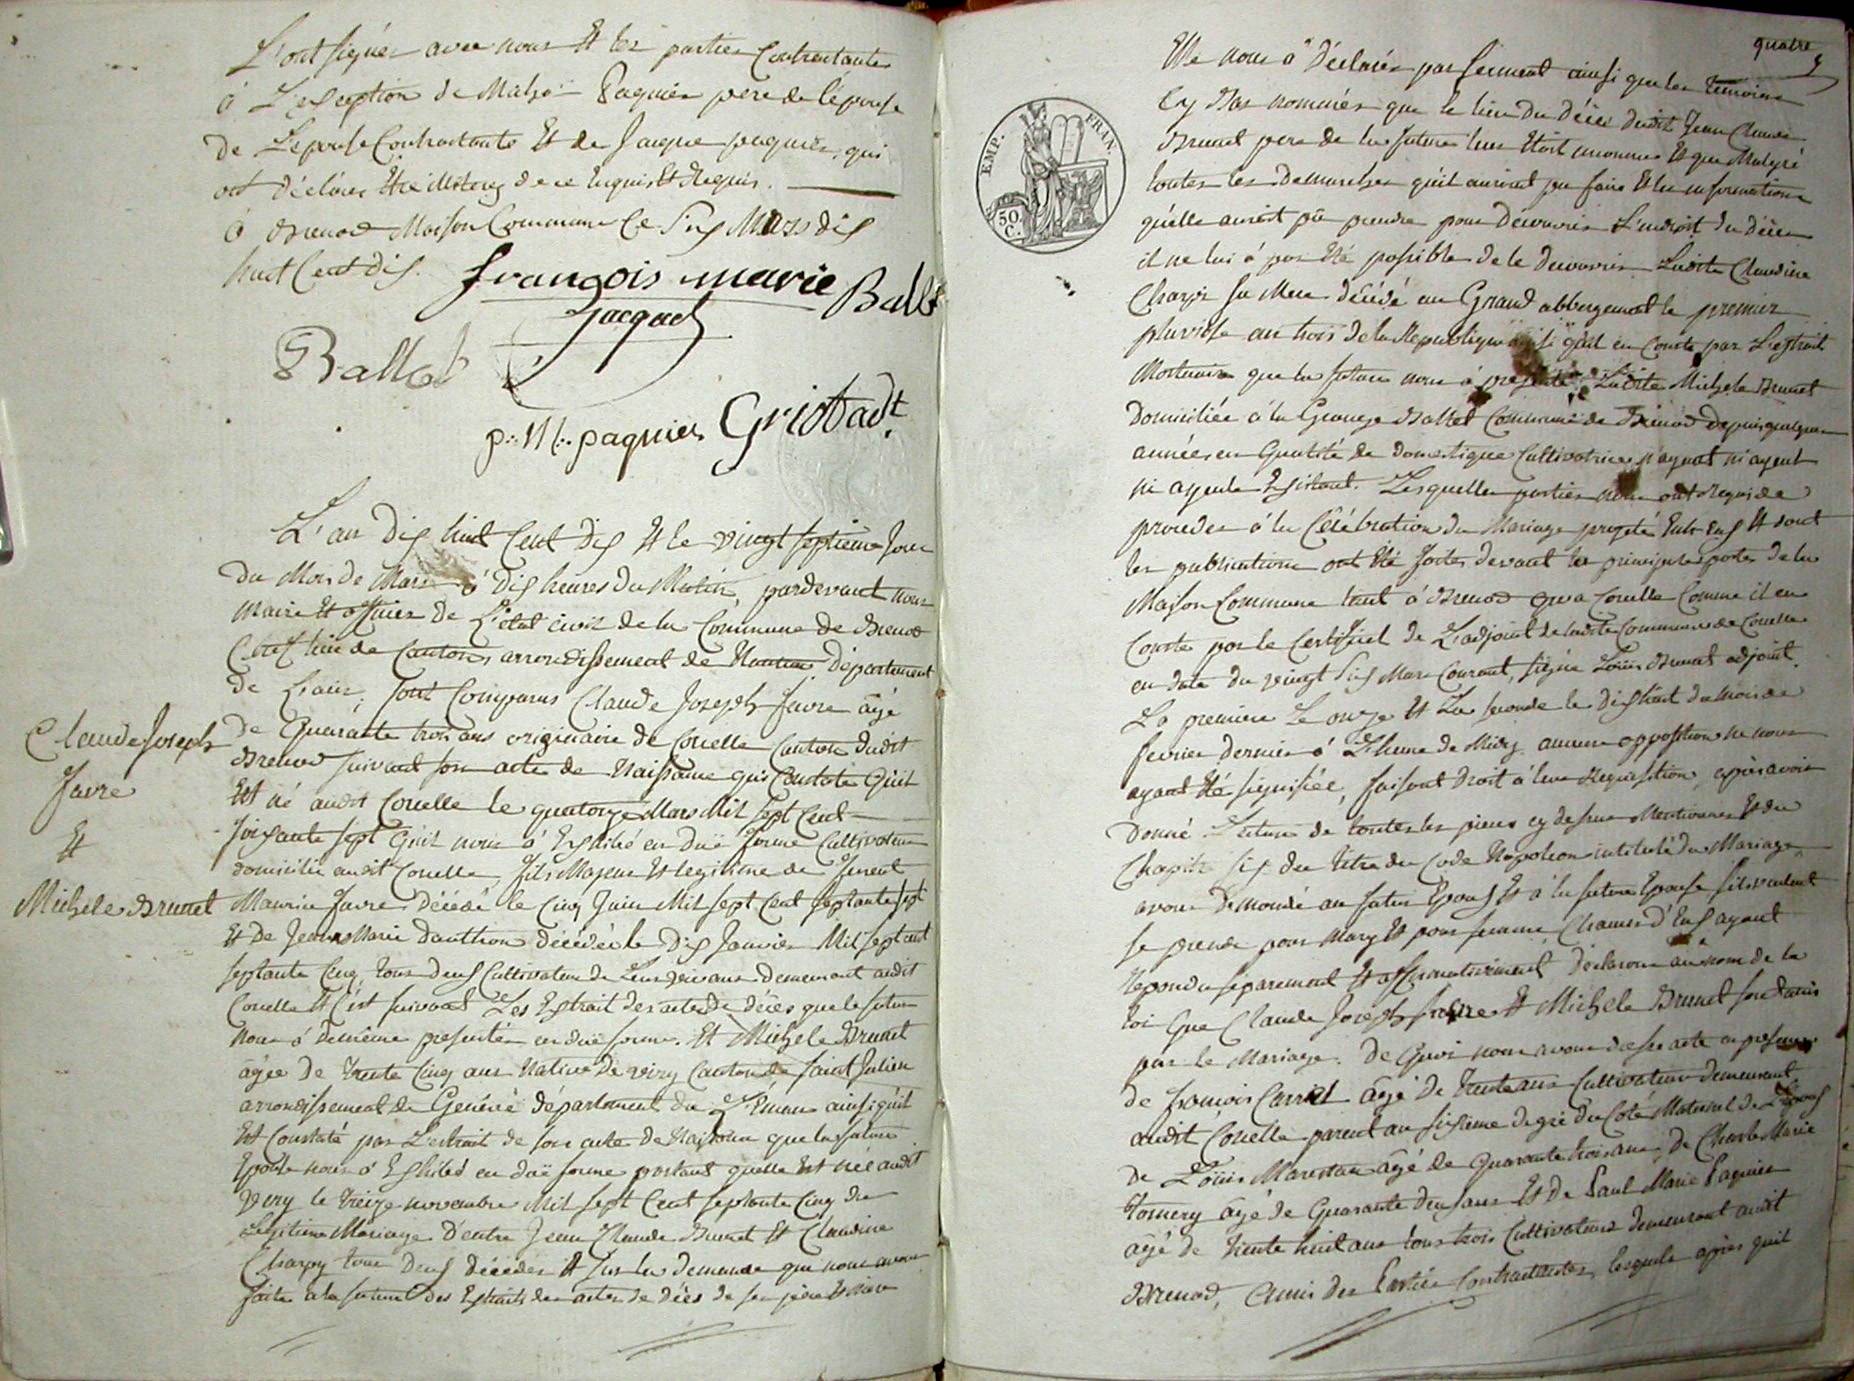 L'ont signés avec nous Et les parties Contractantes
à L'exseption de Mahzé Paquier pere de lépouse
de L'epouse Contractante Et de Jacque paquier, qui
ont déclarés Etre illiterez de ce Enquis Et Requis.
à Brenod Maison Commune Ce Six Mars dix
huit Cent dix.
françois marie
Jacquet
Ballet
Ballet
p: M: paquier
Griobadt
L'an dix huit Cent dix Et le vingt septieme Jour
du Mois de Mars à dix heures du Matin, pardevant nous
Maire Et officier de L'état civil de la Commune de Brenod
Chef lieu de Canton, arrondissement de Nantua, Département
de L'ain, sont Comparus Claude Joseph favre âgé
de Quarante trois ans originaire de Corcelle Canton dudit
Brenod suivant son acte de Naissance qui Constate Qu'il
Est né audit Corcelle le quatorze Mars Mil sept Cent
soixante sept Qu'il nous à Exhibé en due forme Cultivateur
domicilié audit Corcelle, fils Majeur Et legitime de
Maurice favre décédé le Cinq Juin Mil sept Cent septante sept
Et De Jeanne Marie Danthon décédée le Dix Janvier Mil sept cent
septante Cinq tous deux Cultivateurs de Leur vivant demeurant audit
Corcelle Et C'est suivant Les Extrait des actes de décès que le futur
Nous à demême presentés en due forme. Et Michele Brunet
âgée de trente Cinq ans Native de viry Canton de Saint Julien
arrondissement de Genève département du Léman ainsi qu'il
Est Constaté par L'extrait de son acte de Naissance que la future
Epouse nous à Exhibé en due forme portant quelle Est née audit
Viry le treize novembre Mil sept Cent septante Cinq du
Legitime Mariage D'entre Jean Claude Brunet Et Claudine
Charpy tous Deux décédés Et sur la demande que nous avons
faite a la future des Extraits des actes de décès de ses père Et mère
Claude Joseph
favre
Et
Michele Brunet
quatre
EMP. FRAN.
50 C.
Elle nous à Déclarés par serment ainsi que les témoins
Cy Bas nommés que le lieu du décès dudit Jean Claude
Brunet pere de la future leur Etoit inconnu Et que Malgré
toutes les Demarches qu'il auroient pu faire Et les informations
qu'elle auroit pu prendre pour Découvrir L'endroit du décès
il ne lui à pas Eté possible de le decouvrir Ladite Claudine
Charpy sa Mere décédé au Grand abbergement le premier
pluviose an trois de la Republique ainsi qu'il en Conste par L'extrait
Mortuaire que la future nous à presenté Ladite Michele Brunet
Domiciliée à la Grange Ballet Commune de Brenod depuis quelques
années en Qualité de domestique Cultivatrice n'ayant ni ayeul
ni ayeule Existant. Lesquelles parties nous ont Requis de
proceder à la Célébration du Mariage projeté Entr'eux Et dont
les publications ont été faites devant les principales portes de la
Maison Commune tant à Brenod qu'a Corcelle Comme il en
Conste par le Certificat de L'adjoint de ladite Commune de Corcelle
en date du vingt six Mars Courant, signé Louis Brunet adjoint.
La premiere Le onze Et La seconde le dix huit du mois de
fevrier dernier à L'heure de Midy aucune opposition ne nous
ayant Eté signifiée, faisant Droit à leur Requisition, après avoir
donné Lecture de toutes les pieces cy dessus Mentionnées Et du
Chapitre six du titre du Code Napoleon intitulé du Mariage,
avons Demandé au futur Epoux Et à la future Epouse s'ils veulent
se prendre pour Mary Et pour femme, Chacun d'Eux ayant
Repondu séparement Et affirmativement, declarons au nom de la
loi Que Claude Joseph favre Et Michele Brunet sont unis
par le Mariage. De Quoi nous avons dressé acte en presence
de françois Carrel âgé de trente ans Cultivateur demeurant
audit Corcelle parent au sixieme degré du Coté Maternel de L'Epoux
de Loüis Marestan âgé de quarante trois ans, de Charle Marie
âgé de Quarante deux ans Et de Paul Marie Paquier
âgé de trente huit ans tous trois Cultivateurs demeurant audit
Brenod, amis des Parties Contractantes, lesquels après qu'il